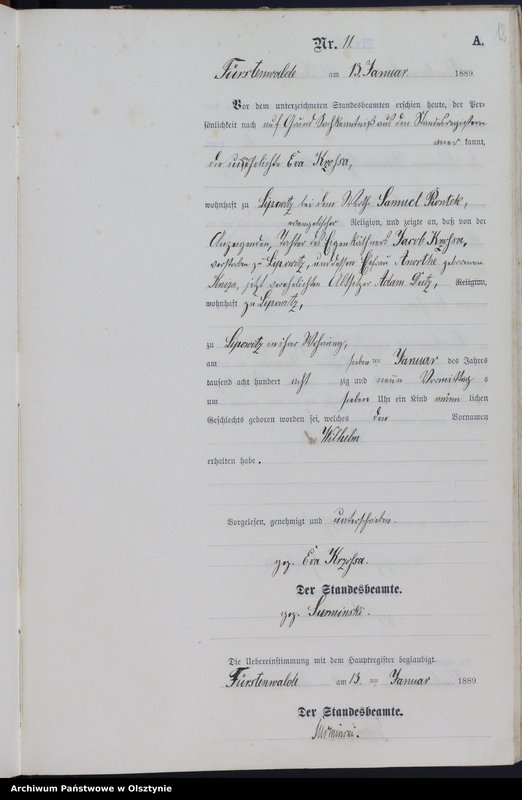 12
Nr. 11.
A.
Fürstenwalde am 13. Januar 1889.
Vor dem unterzeichneten Standesbeamten erschien heute, der Per-
sönlichkeit nach auf Grund Sachkenntniß aus den Standesregistern
aner kannt,
die unverehelichte Eva Krzossa,
wohnhaft zu Lipowitz bei dem Wirth Samuel Piontek,
evangelischer Religion, und zeigte an, daß von der
Anzeigenden, Tochter des Eigenkäthners Jacob Krzossa,
verstorben zu Lipowitz, und dessen Ehefrau Anorthe geborenen
jetzt verehelichten Altsitzer Adam Dutz, Religion,
wohnhaft zu Lipowitz,
zu Lipowitz in ihrer Wohnung,
am sieben ten Januar des Jahres
tausend acht hundert acht zig und neun Vormittag s
um sieben Uhr ein Kind männ lichen
Geschlechts geboren worden sei, welches den Vornamen
Wilhelm
erhalten habe.
Vorgelesen, genehmigt und unterschrieben.
gez. Eva Krzossa.
Der Standesbeamte.
gez. Surminski.
Die Uebereinstimmung mit dem Hauptregister beglaubigt.
Fürstenwalde am 13. ten Januar 1889
Der Standesbeamte.
Surminski.
Archiwum Państwowe w Olsztynie